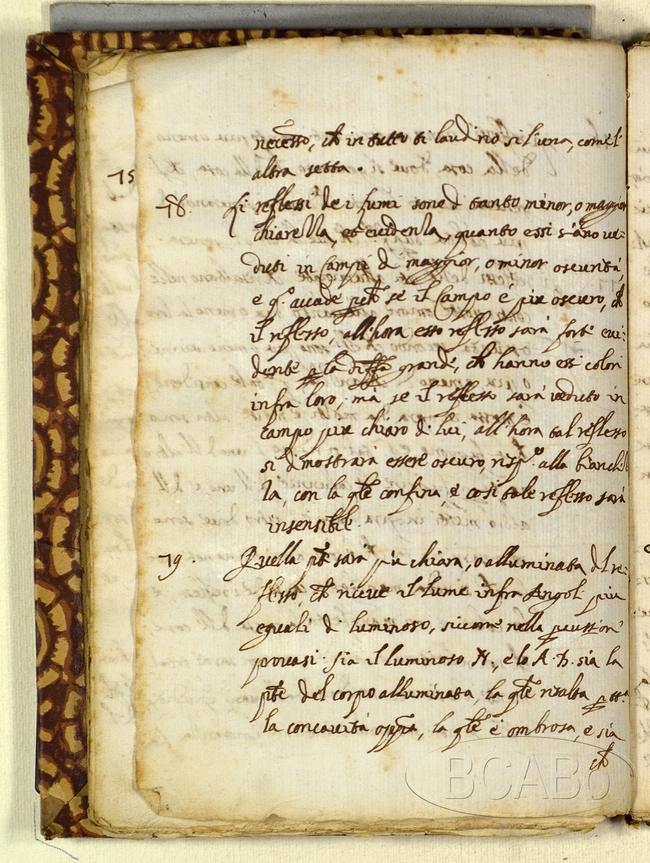 necesso, ch in tutto ti laudino sì l'una, come l'
altra setta.
75
78. Li reflessi de i fumi sono d tanto minor, o maggior
chiarezza, et evidenza, quanto essi siano ve-
duti in Campi di maggior, o minor oscurità,
e q.° accade pch se il Campo è piu oscuro, ch
il reflesso, all'hora esso reflesso sarà forte evi-
dente p la diffa grande, ch hanno essi colori
infra loro, mà se il reflesso sarà veduto in
Campo piu chiaro di lui, all'hora tal reflesso
si dimostrarà essere oscuro, risp.° alla bianchez
za, con la qle confina, e così tale reflesso sarà
insensibile.
79. Quella pte sarà piu chiara, o alluminata dl re-
flesso, ch riceve il lume infra Angoli piu
equali di luminoso, sicome nella
provasi. Sia il luminoso N., e lo A. B. sia la
pte del corpo alluminata, la qle risalta p tta
la concavità oppta, la qle è ombrosa, e sia
ch
BCABo